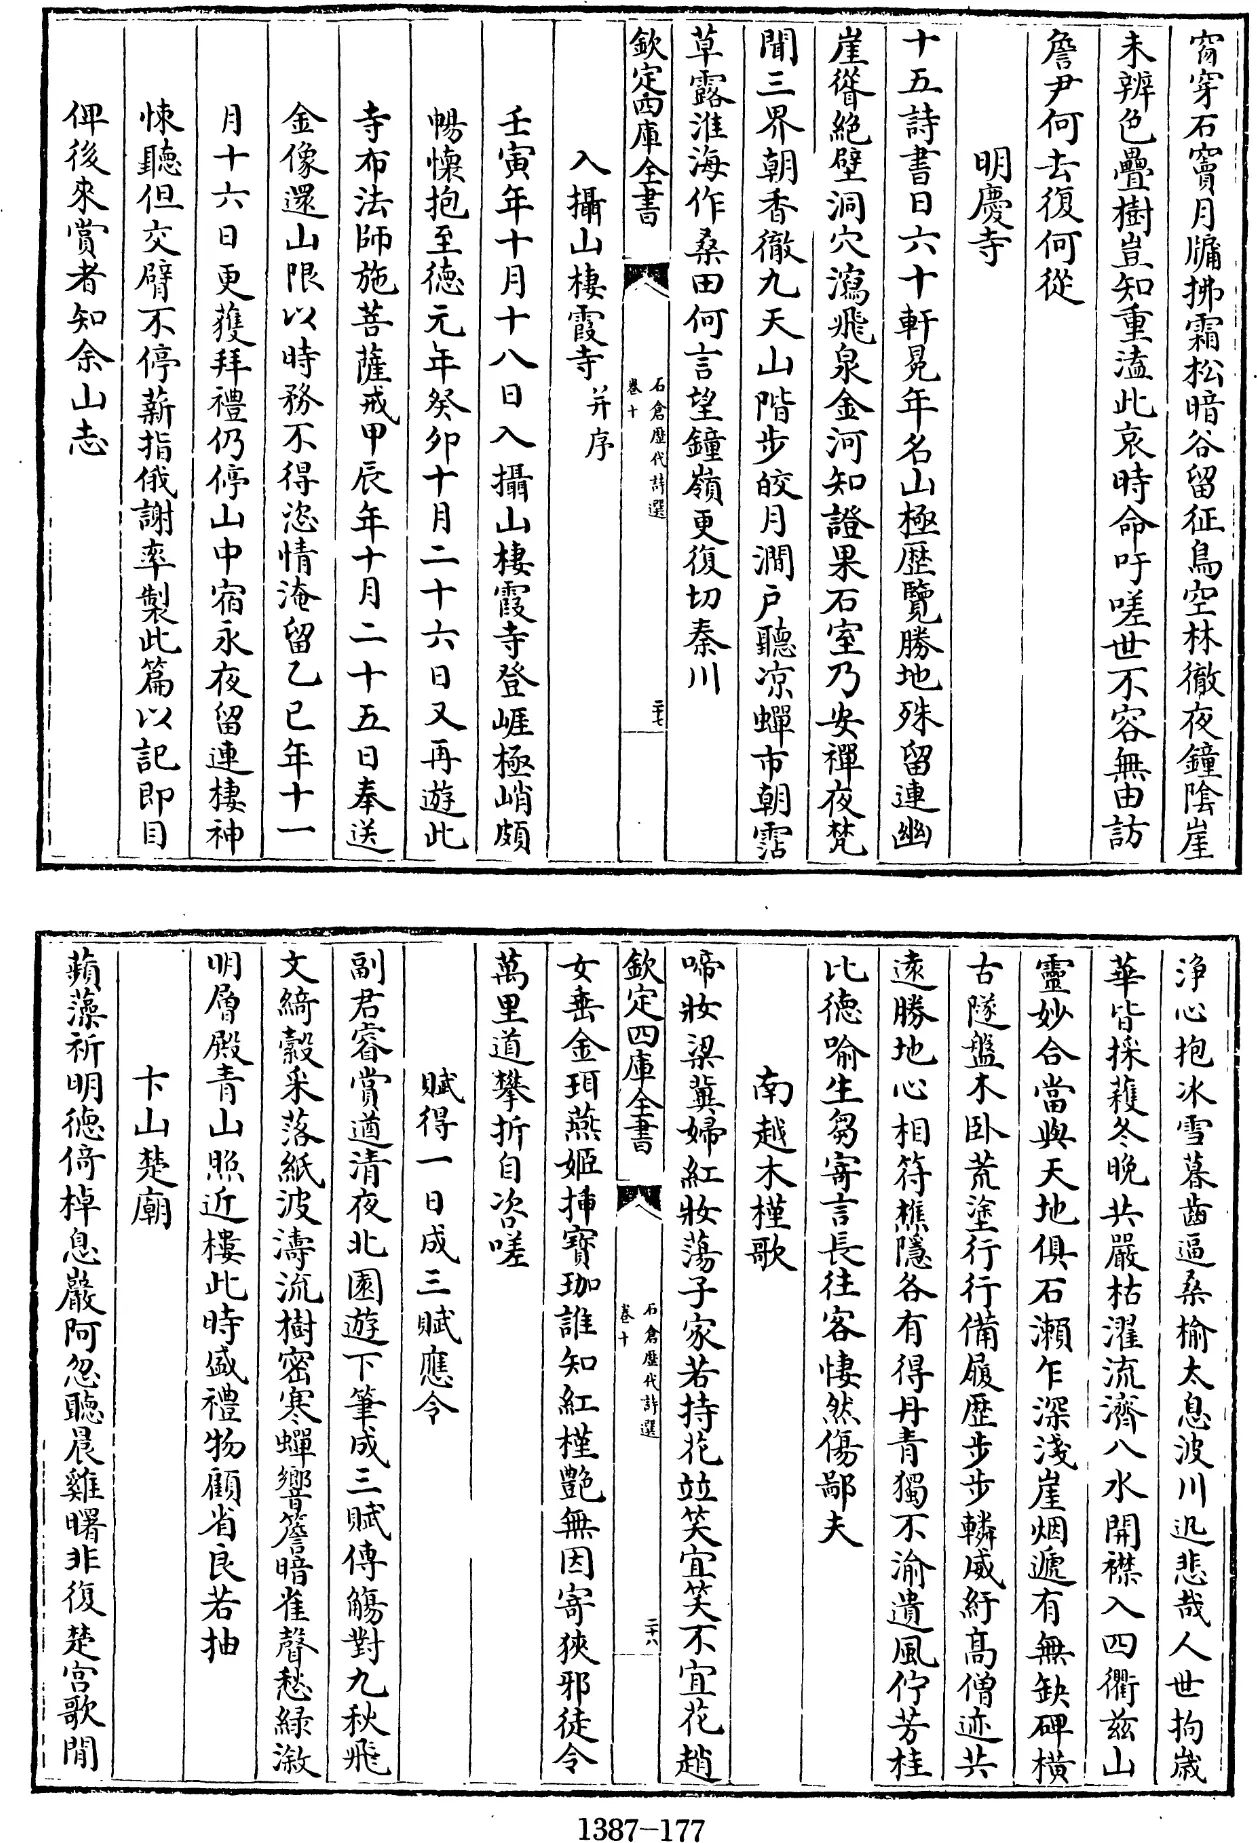 窅穿石竇月牖拂霜松暗谷留征鳥空林徹夜鐘陰崖
未辨色疊樹豈知重溘此哀時命吁嗟世不容無由訪
詹尹何去復何從
明慶寺
十五詩書日六十軒冕年名山極歴覽勝地殊留連幽
崖聳絶壁洞穴瀉飛泉金河知證果石室乃安禪夜梵
聞三界朝香徹九天山階步皎月澗戸聽凉蟬市朝霑
草露淮海作桑田何言望鐘嶺更復切秦川
欽定四庫全書
石倉歷代詩選
卷十
二十七
入攝山棲霞寺并序
壬寅年十月十八日入攝山棲霞寺登崕極峭頗
暢懷抱至徳元年癸卯十月二十六日又再遊此
寺布法師施菩薩戒甲辰年十月二十五日奉送
金像還山限以時務不得恣情淹留乙巳年十一
月十六日更獲拜禮仍停山中宿永夜留連棲神
悚聽但交臂不停薪指俄謝率製此篇以記即目
俾後來賞者知余山志
淨心抱冰雪暮齒逼桑榆太息波川迅悲哉人世拘歳
華皆採穫冬晚共嚴枯濯流濟八水開襟入四衢兹山
靈妙合當與天地俱石瀨乍深淺崖烟遞有無缺碑橫
古隧盤木卧荒塗行行備履歴步步轔威紆髙僧迹共
遠勝地心相符樵隱各有得丹青獨不渝遺風佇芳桂
比徳喻生芻寄言長往客悽然傷鄙夫
南越木槿歌
啼妝梁冀婦紅妝蕩子家若持花竝笑宜笑不宜花趙
欽定四庫全書
石倉歷代詩選
卷十
二十八
女垂金珥燕姬揷寶珈誰知紅槿艷無因寄狹邪徒令
萬里道攀折自咨嗟
賦得一日成三賦應令
副君睿賞遒清夜北園遊下筆成三賦傳觴對九秋飛
文綺縠采落紙波濤流樹密寒蟬響簷暗雀聲愁緑溆
明層殿青山照近樓此時盛禮物顧省良若抽
卞山楚廟
蘋藻祈明徳倚棹息巖阿忽聽晨雞曙非復楚宫歌閒
1387—177